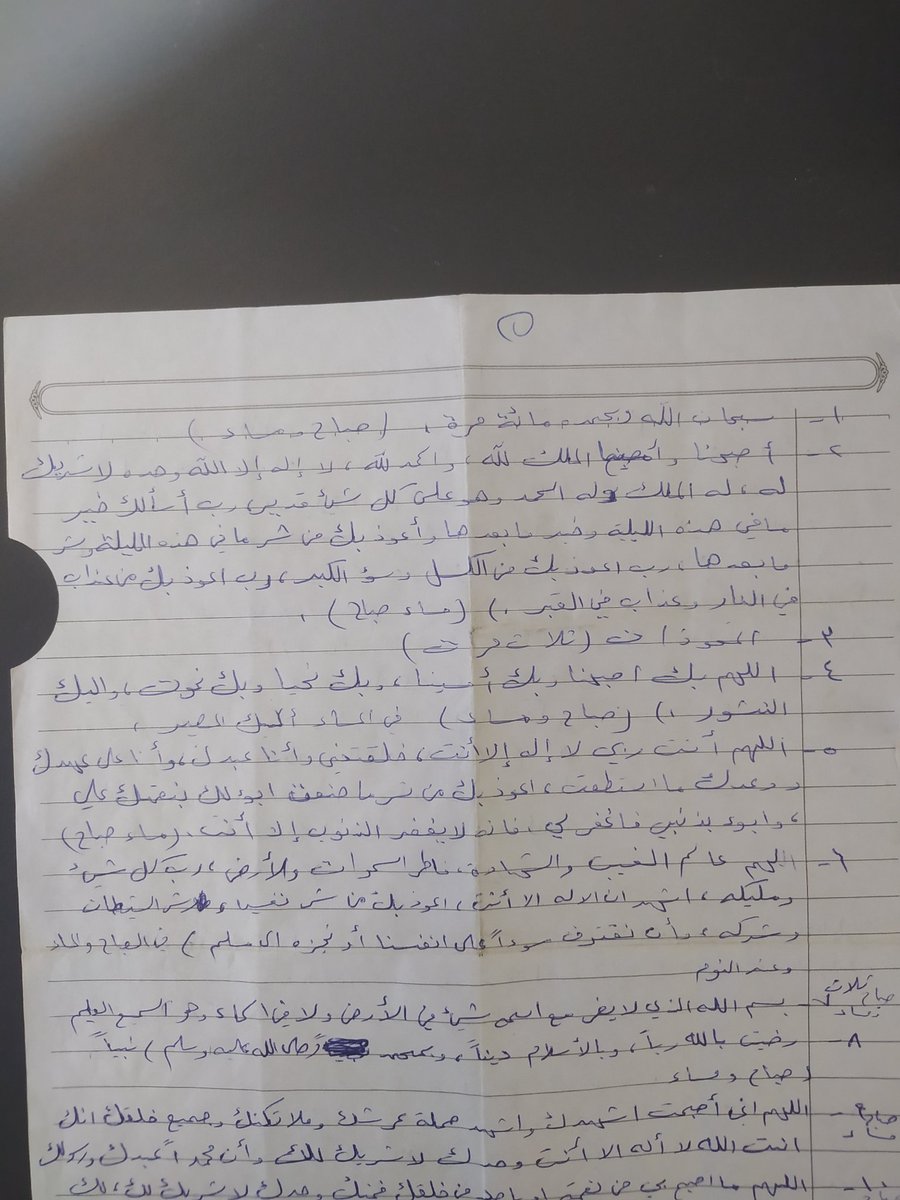 ١
١- سبحان الله وبحمده مائة مرة، (صباح ومساء.)
٢- أصبحنا الملك لله، والحمد لله، لا إله إلا الله وحده لا شريك
له، له الملك وله الحمد وهو على كل شئ قدير، رب أسألك خير
ما في هذه الليلة وخير ما بعدها وأعوذ بك من شر ما في هذه الليلة وشر
ما بعدها، رب اعوذ بك من الكسل وسؤ الكبر، رب اعوذ بك من عذاب
في النار وعذاب في القبر.) (مساء صباح).
٣- المعوذات (ثلاث مرات)
٤- اللهم بك اصبحنا وبك أمسينا، وبك نحيا وبك نموت، واليك
النشور.) (صباح ومساء) في المساء إليك المصير.
٥- اللهم أنت ربي لا إله إلا أنت، خلقتني وأنا عبدك، وأنا على عهدك
ووعدك ما استطعت، اعوذ بك من شر ما صنعت ابوء لك بنعمتك علي
، وابوء بذنبي فاغفر لي، فانه لا يغفر الذنوب إلا أنت. (مساء صباح)
٦- اللهم عالم الغيب والشهادة، فاطر السموات والأرض، رب كل شيئ
ومليكه، اشهد ان لا اله الا أنت، اعوذ بك من شر نفسي وشر الشيطان
وشركه، وأن نقترف سوءاً على انفسنا أو نجره الى مسلم) في الصباح والمساء
وعند النوم
صباح ثلاث
ومساء
٧- بسم الله الذي لا يضر مع اسمه شيئ في الأرض ولا في السماء وهو السميع العليم
٨- رضيت بالله رباً، وبالأسلام ديناً، وبمحمد (صلى الله عليه وسلم) نبياً.
(صباح ومساء
صباح
مساء
- اللهم اني أصبحت اشهدك واشهد حملة عرشك وملائكتك وجميع خلقك انك
انت الله لا أله الا أنت وحدك لا شريك لك وأن محمداً عبدك ورسولك
١٠- اللهم ما اصبح بي من نعمة او باحد من خلقك فمنك وحدك لا شريك لك، لك